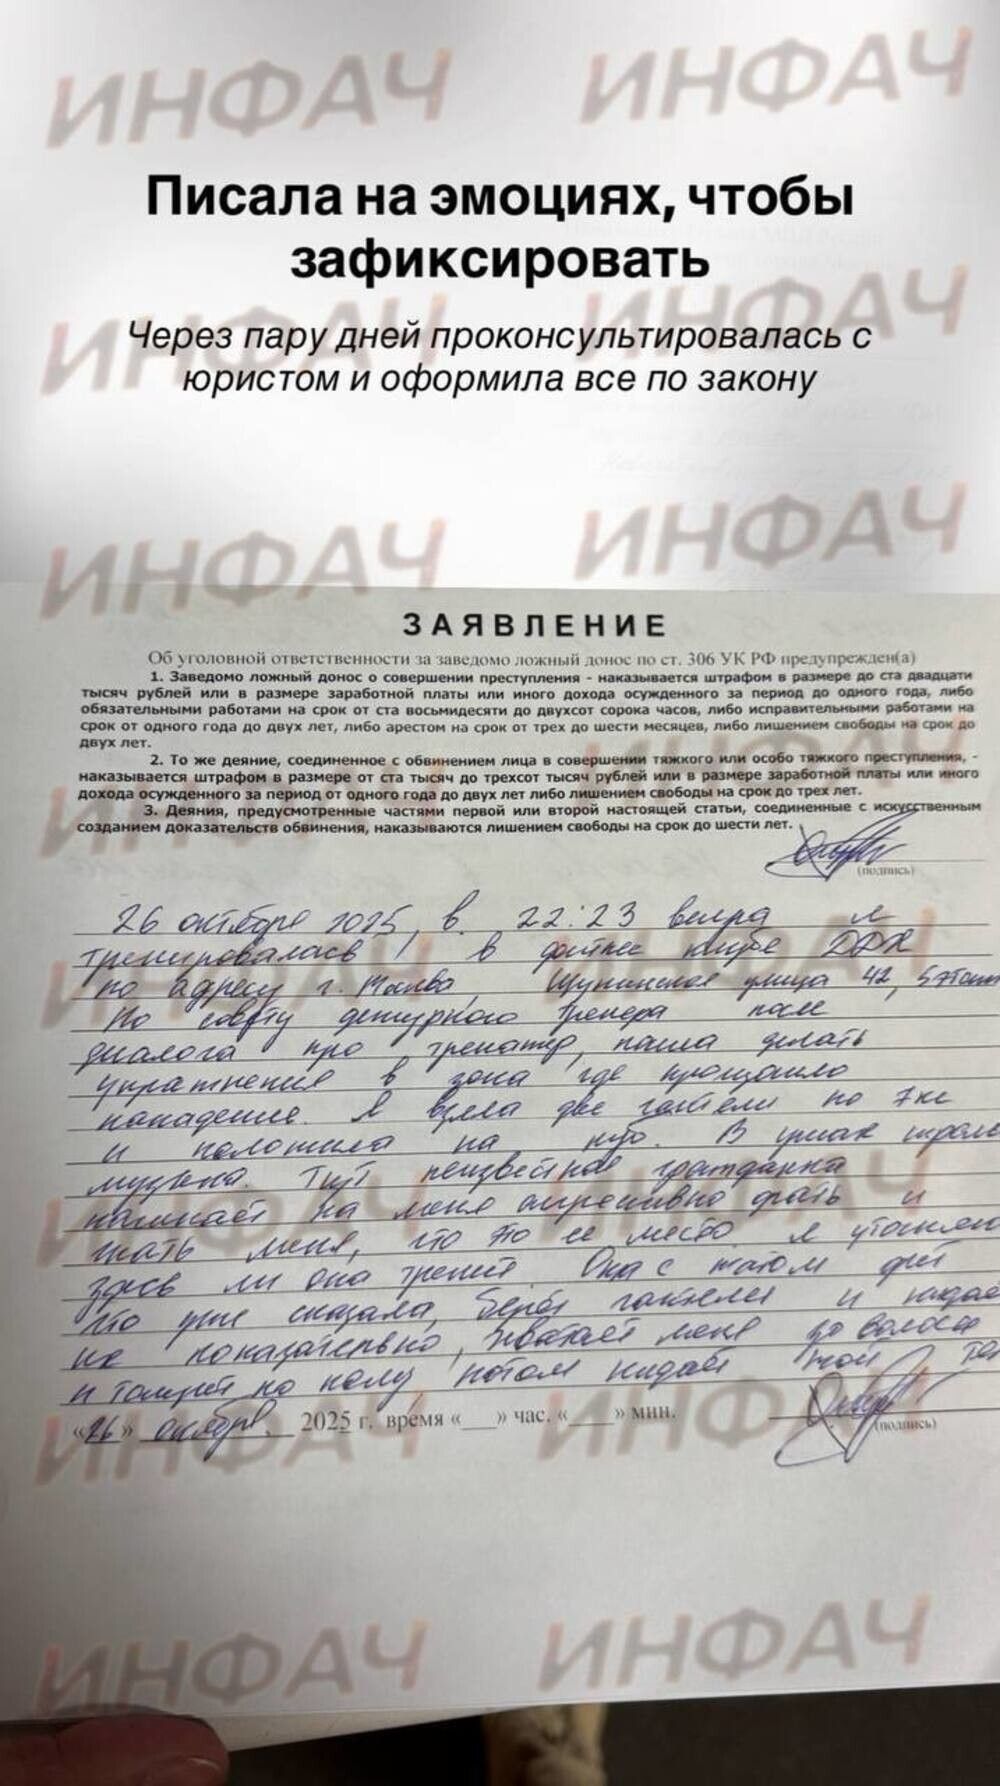 ИНФАЧ ИНФАЧ
Писала на эмоциях, чтобы
зафиксировать
ИНФАЧ ИНФАЧ
Через пару дней проконсультировалась с
юристом и оформила все по закону
ИНФАЧ ИНФАЧ
ЗАЯВЛЕНИЕ
Об уголовной ответственности за заведомо ложный донос по ст. 306 УК РФ предупрежден(а)
1. Заведомо ложный донос о совершении преступления - наказывается штрафом в размере до ста двадцати
тысяч рублей или в размере заработной платы или иного дохода осужденного за период до одного года, либо
обязательными работами на срок от ста восьмидесяти до двухсот сорока часов, либо исправительными работами на
срок от одного года до двух лет, либо арестом на срок от трех до шести месяцев, либо лишением свободы на срок до
двух лет.
2. То же деяние, соединенное с обвинением лица в совершении тяжкого или особо тяжкого преступления, -
наказывается штрафом в размере от ста тысяч до трехсот тысяч рублей или в размере заработной платы или иного
дохода осужденного за период от одного года до двух лет либо лишением свободы на срок до трех лет.
3. Деяния, предусмотренные частями первой или второй настоящей статьи, соединенные с искусственным
созданием доказательств обвинения, наказываются лишением свободы на срок до шести лет.
(подпись)
26 октября 2025, в 22:23 вечера я
тренировалась в фитнес клубе ДДХ
по адресу г. Москва, Щукинская улица 42, 5 этаж
По совету дежурного тренера после
диалога про тренажер, пошла делать
упражнения в зона где произошло
нападение. Я взяла две гантели по 7кг
и положила на пол. В ушах играла
музыка. Тут неизвестная гражданка
начинает на меня агрессивно орать и
гнать меня, что это ее место. я уточняю
здесь ли она тренит. Она с матом орёт
что уже сказала, берёт гантели и кидает
их показательно, хватает меня за волосы
и толкает по полу, потом кидает мой
«26» октября 2025 г. время «___» час. «___» мин.
(подпись)
ИНФАЧ ИНФАЧ
ИНФАЧ ИНФАЧ